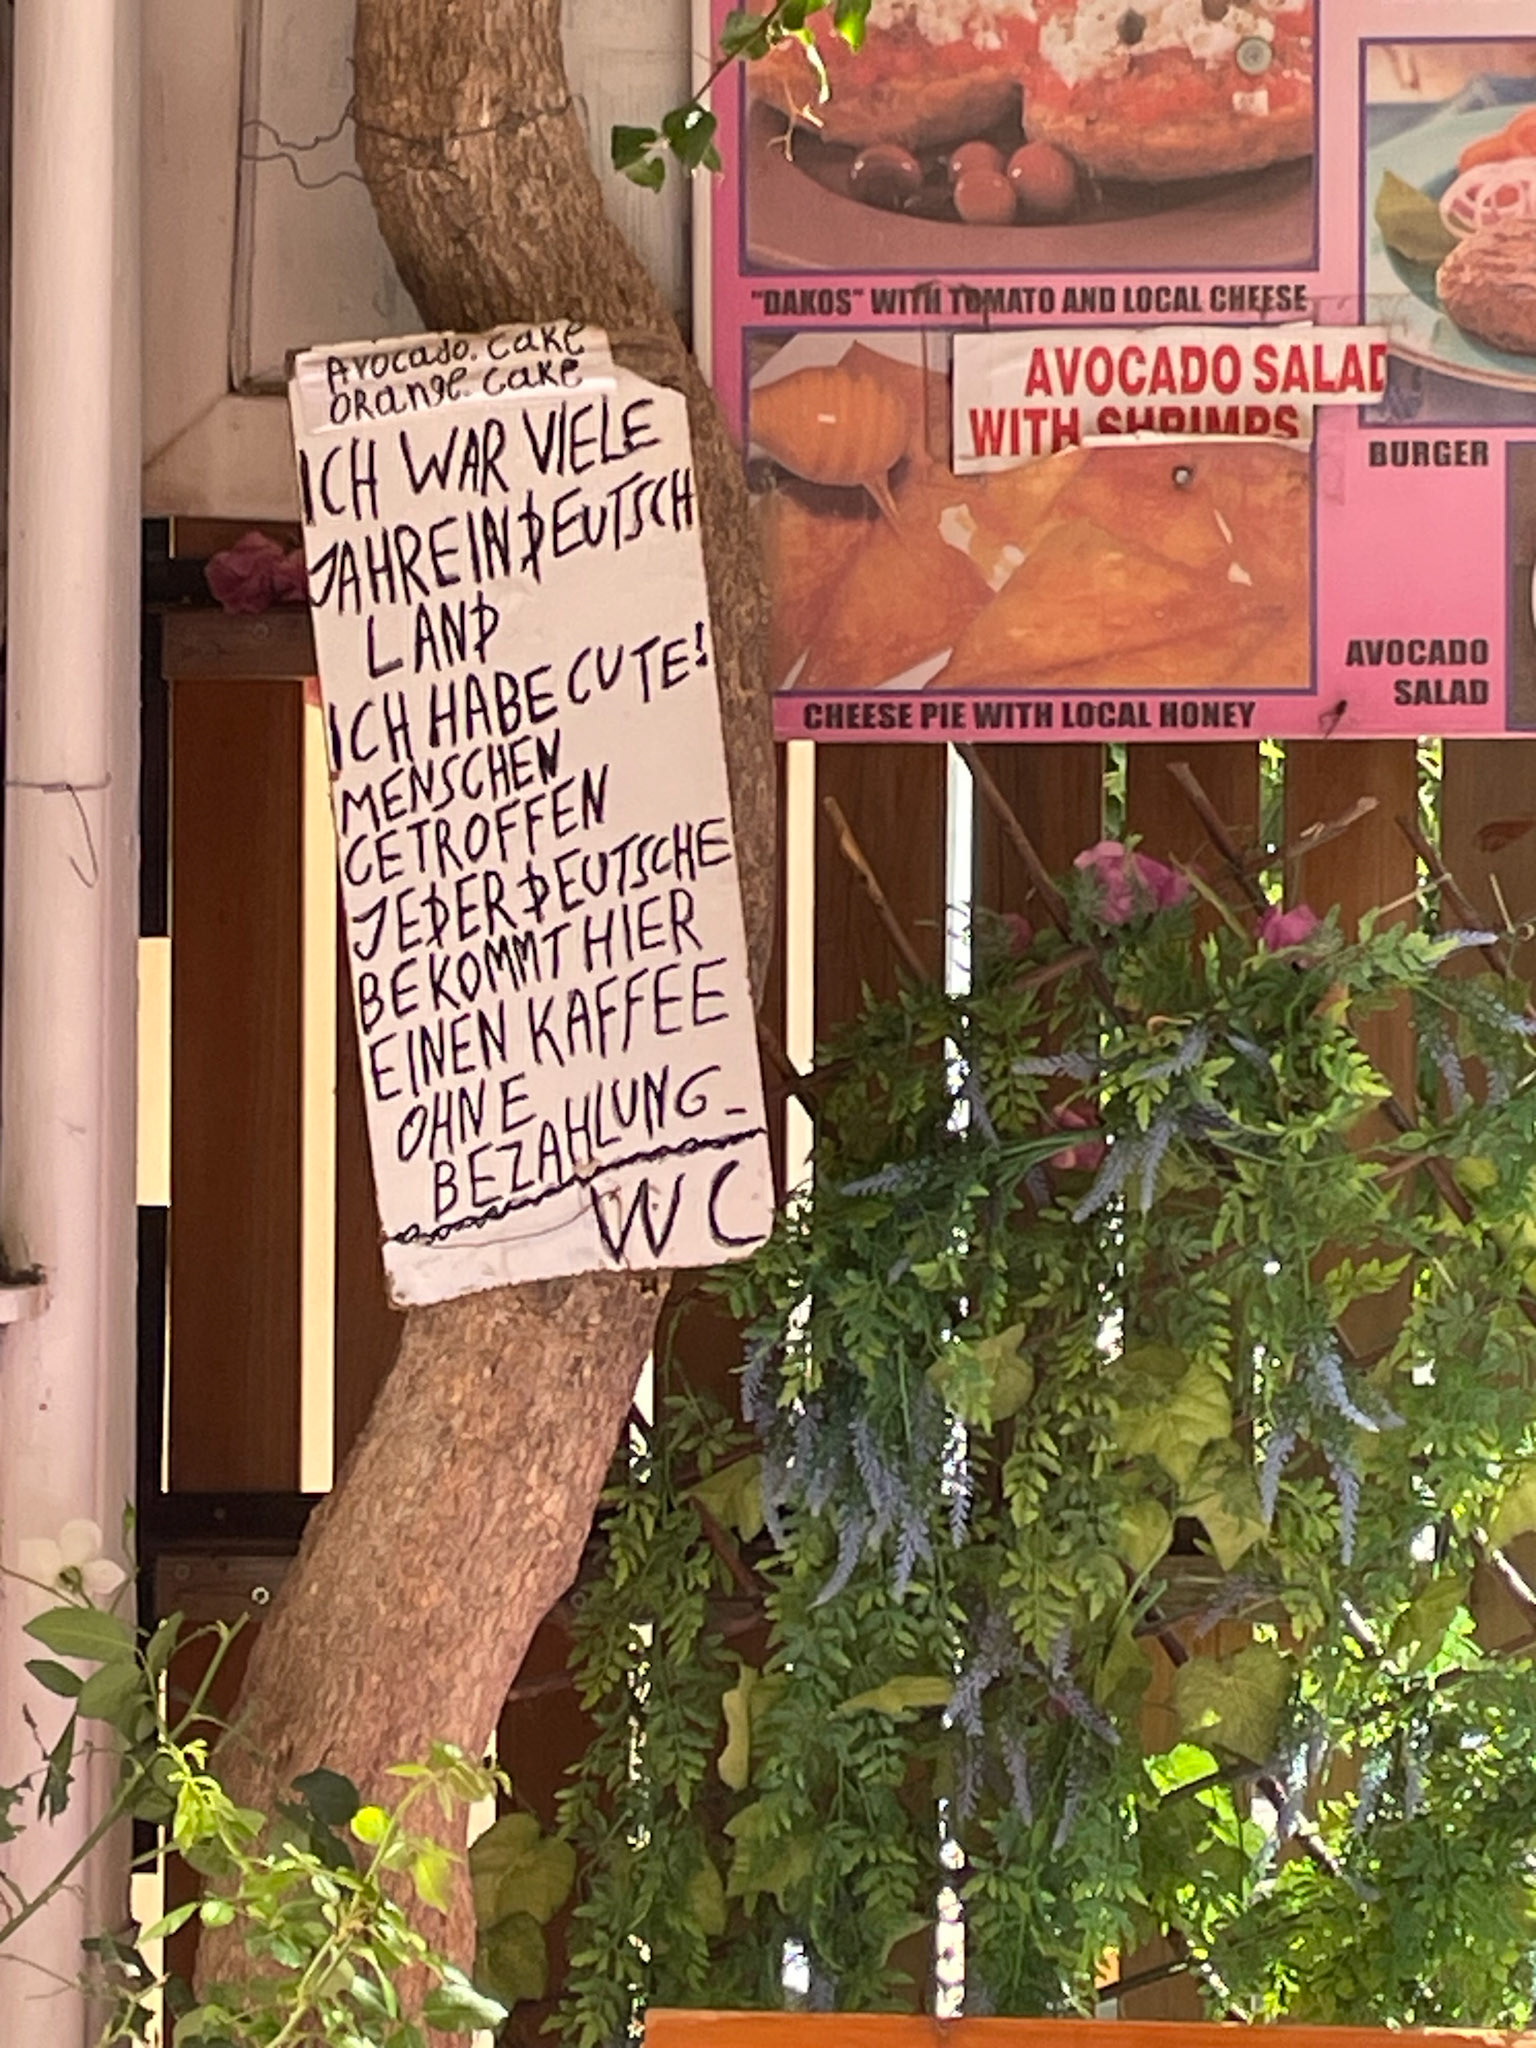 Avocado. cake
ORange. cake
ICH WAR VIELE
JAHRE IN DEUTSCH
LAND
ICH HABE CUTE!
MENSCHEN
CETROFFEN
JEDER DEUTSCHE
BEKOMMT HIER
EINEN KAFFEE
OHNE
BEZAHLUNG_
WC
"DAKOS" WITH TOMATO AND LOCAL CHEESE
AVOCADO SALAD
WITH SHRIMPS
CHEESE PIE WITH LOCAL HONEY
BURGER
AVOCADO
SALAD